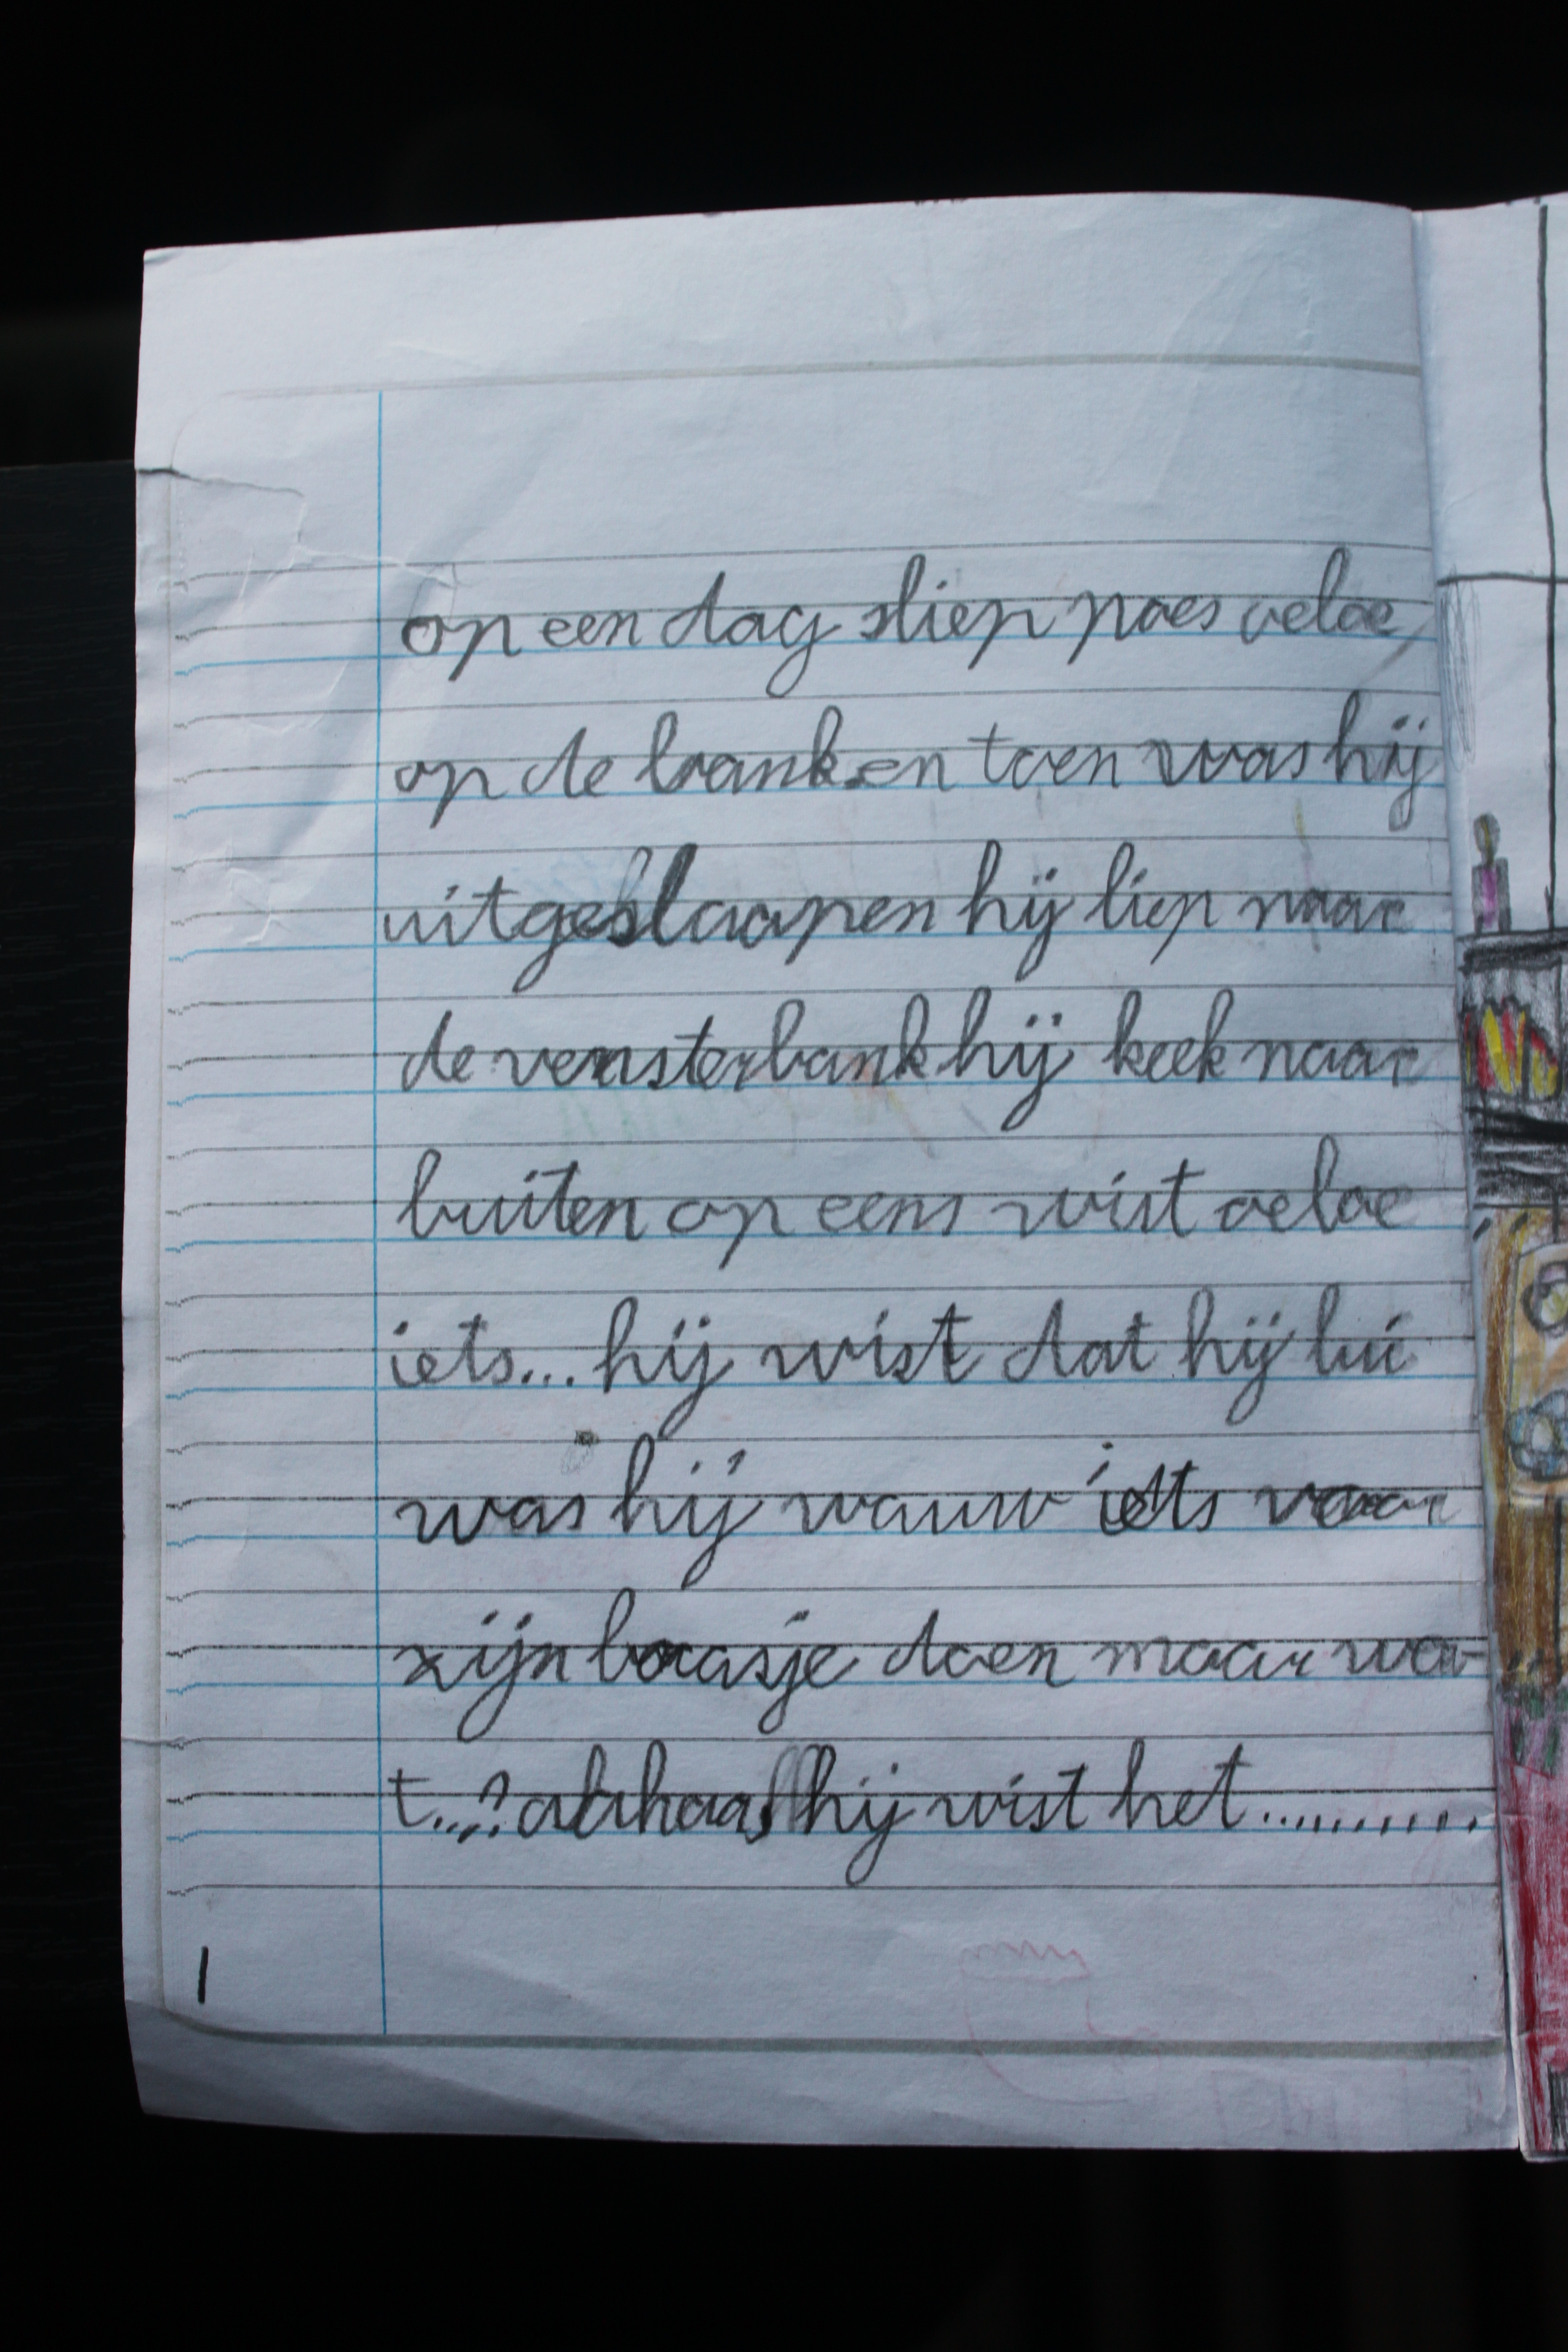 op een dag sliep poes oeloe
op de bank en toen was hij
uitgeslaapen hij liep naar
de vensterbank hij keek naar
buiten op eens wist oeloe
iets... hij wist dat hij lui
was hij wauw iets voor
zijn baasje doen maar wa-
t...? hij wist het...........
1